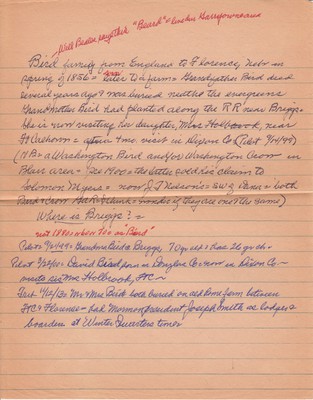 Well Baden together "Beard" = London Garryowen and
Bird family from England to Florence, Nebr in
spring of 1856 = later to a farm = Grandfather Bird died
several years ago & was buried neath the evergreens
Grand Mother Bird had planted along the RR near Briggs =
She is now visiting her daughter, Mrs Holbrook, near
Ft Calhoun = after 4 mo. visit in Dixon Co (Pilot 9/14/99)
(NB = a Washington Bird and/or Washington Crow in
Blair area = Dec 1900 = the latter sold his claim to
Solomon Myers = now J T Nelson's = SW of Dana = both
Bird & Crow Hark blank = wonder if they are one & the same)
Where is Briggs? =
not 1880s when I is on Bird"
Pilot 9/14/99 = Grandma Bird a Briggs, 70 yr old & have 26 gr ch =
Pilot = David Bird farm in Douglas Co now in Dixon Co =
visits sis Mrs Holbrook, FtC ~
Mr & Mrs Bird both buried on old home farm between
FtC & Florence = had Mormon president Joseph Smith as lodger &
boarder at Winter Quarters times